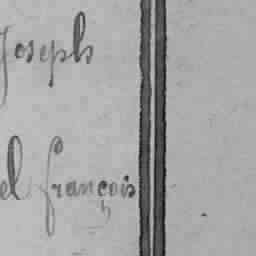 Joseph
el françois